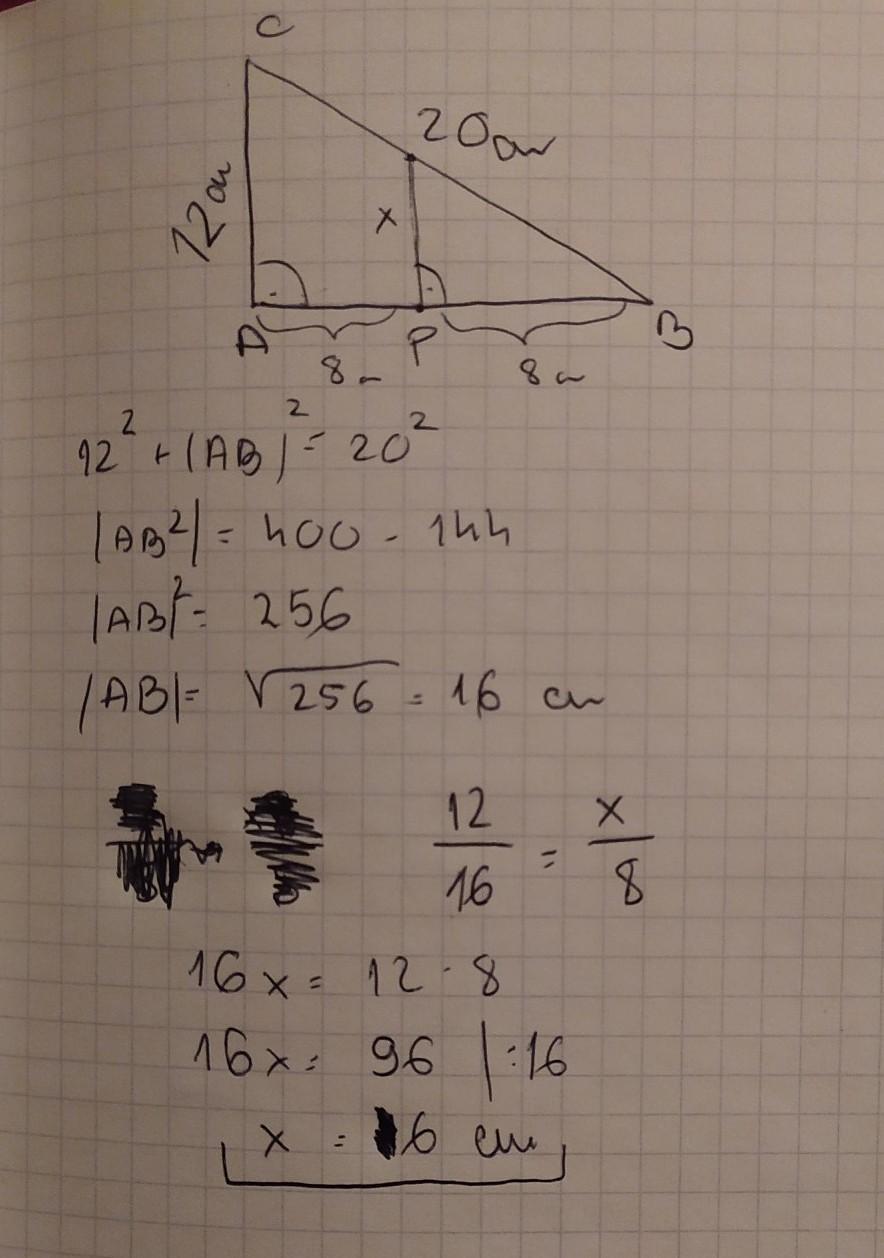 C
20cm
12cm
x
A
P
B
8cm
8cm
12² + |AB|² = 20²
|AB²| = 400 - 144
|AB|² = 256
|AB| = √256 = 16 cm
12/16 = x/8
16x = 12 · 8
16x = 96 |:16
x = 6 cm